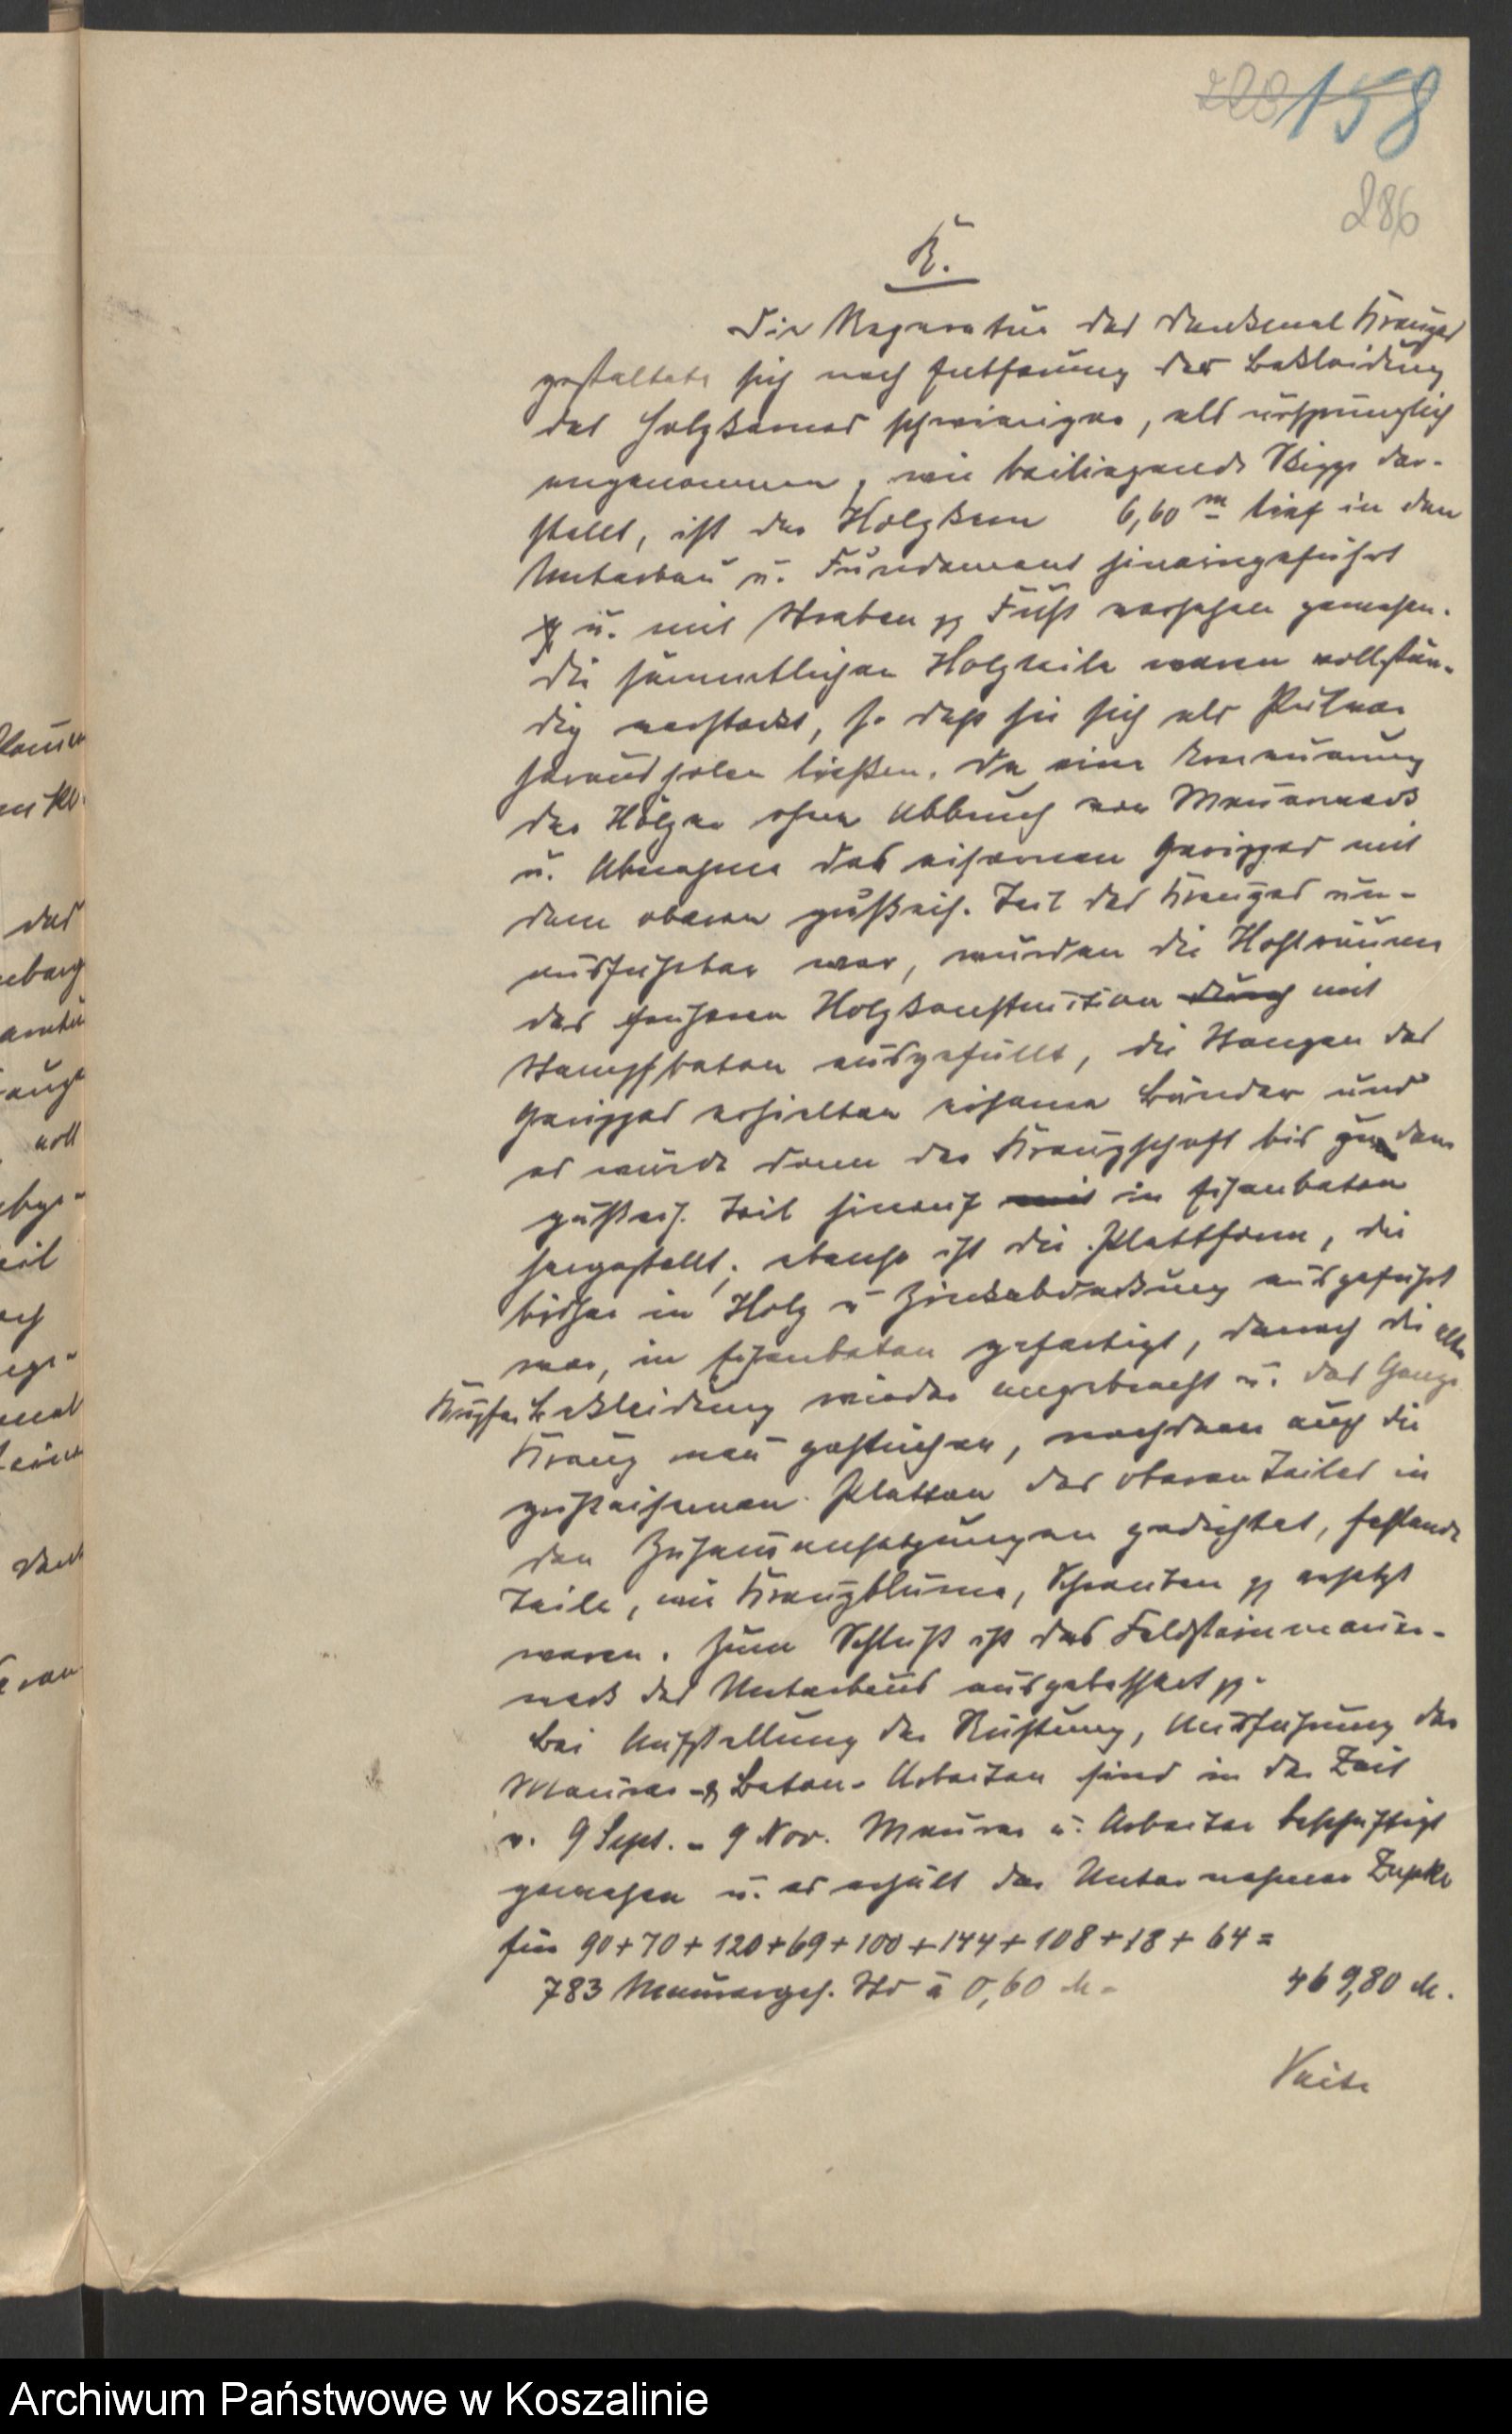 228 158
286
K.
Die Reparatur des Denkmal Kreuzes
gestaltete sich nach Entfernung der Bekleidung
des Holzkernes schwieriger, als ursprünglich
angenommen, wie beiliegende Skizze dar-
stellt, ist der Holzkern 6,60 m tief in den
Unterbau u. Fundament hineingeführt
u. mit Streben pp Fuß versehen gewesen.
Die sämmtlichen Holzteile waren vollstän-
dig verstockt, so daß sie sich als Pulver
herausholen ließen. Da eine Erneuerung
der Hölzer ohne Abbruch von Mauerwerk
u. Abnahme des eisernen Gerippes mit
dem oberen gußeis. Teil des Kreuzes un-
ausführbar war, wurden die Hohlräume
der früheren Holzkonstruktion durch mit
Stampfbeton ausgefüllt, die Stangen des
Gerippes erhielten eiserne Bänder und
es wurde dann der Kreuzschaft bis zu dem
gußeis. Teil hinauf mit in Eisenbeton
hergestellt; ebenso ist die Plattform, die
bisher in Holz u Zinkabdeckung ausgeführt
war, in Eisenbeton gefertigt, danach die alte
Kupferbekleidung wieder angebracht u. das Ganze
Kreuz neu gestrichen, nachdem auch die
gußeisernen Platten des oberen Teiles in
den Zusammensetzungen gedichtet, fehlende
Teile, wie Kreuzblume, Schrauben pp ersetzt
waren. Zum Schluß ist das Feldsteinmauer-
werk des Unterbaus ausgebessert pp.
Bei Aufstellung der Rüstung, Ausführung der
Maurer- & Beton- Arbeiten sind in der Zeit
v. 9 Sept. - 9 Nov. Maurer u. Arbeiter beschäftigt
gewesen u. es erhält der Unternehmer Zupke
für 90+70+120+69+100+144+108+18+64=
783 Maurerges. Std à 0,60 M = 469,80 M.